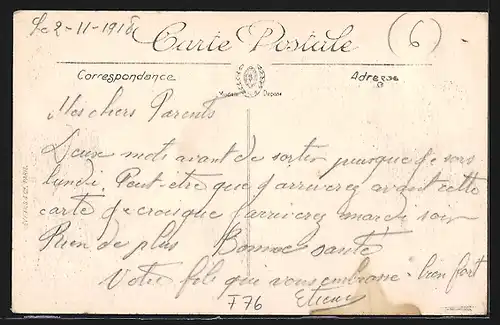 Le 2-11-1918
(6)
Carte Postale
Correspondance
Adresse
Mes chers Parents
Deux mots avant de sortir puisque je sors
lundi. Peut-etre que j'arriverez avant cette
carte je crois que j'arriverez mardi soir
Rien de plus Bonne santé
Votre fils que vous embrasse bien fort
Etienne
T76